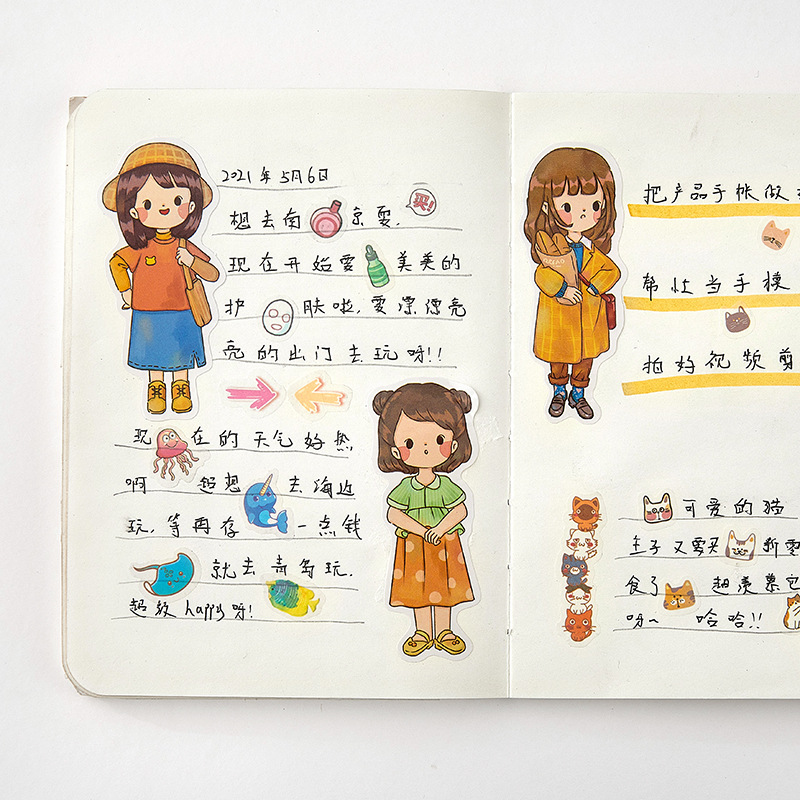 2021年5月6日
想去南京耍.
买!
现在开始要美美的
护肤啦,要漂漂亮
亮的出门去玩呀!!
现在的天气好热
啊 超想去海边
玩,等再存一点钱
就去青岛玩.
超级happy呀!
把产品手帐做
帮忙当手模
拍好视频剪
可爱的猫
主子又要买新零
食了 超羡慕它
呀~ 哈哈!!